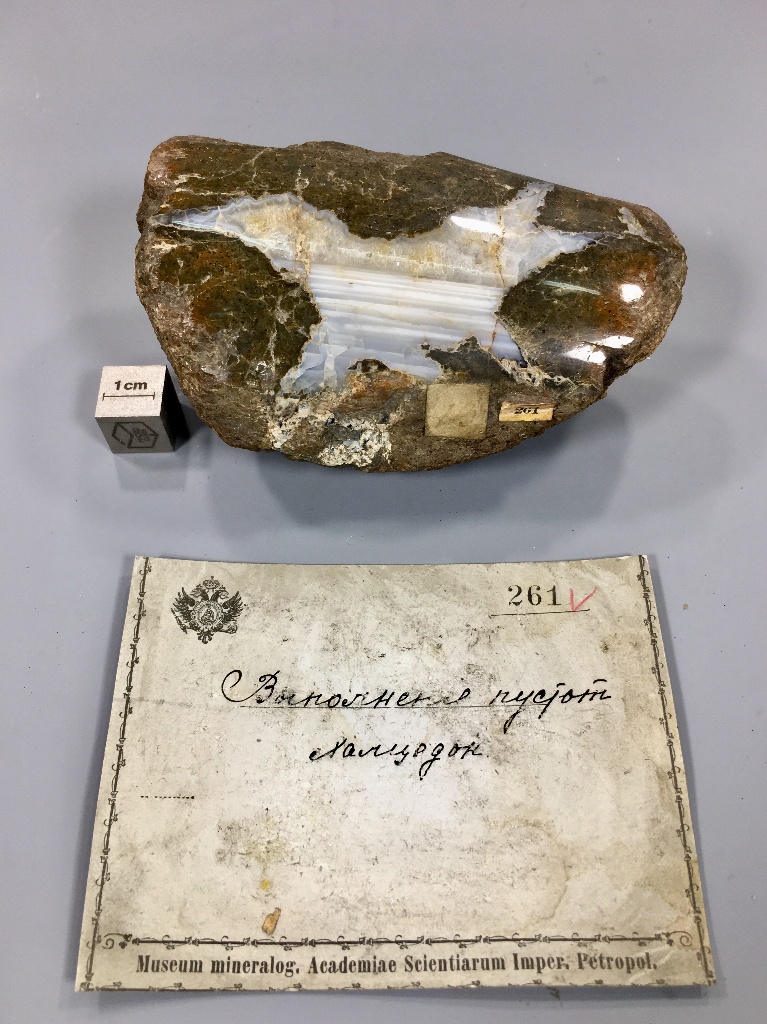 1 cm
261
261
Выполнение пустот
Халцедон
Museum mineralog. Academiae Scientiarum Imper. Petropol.